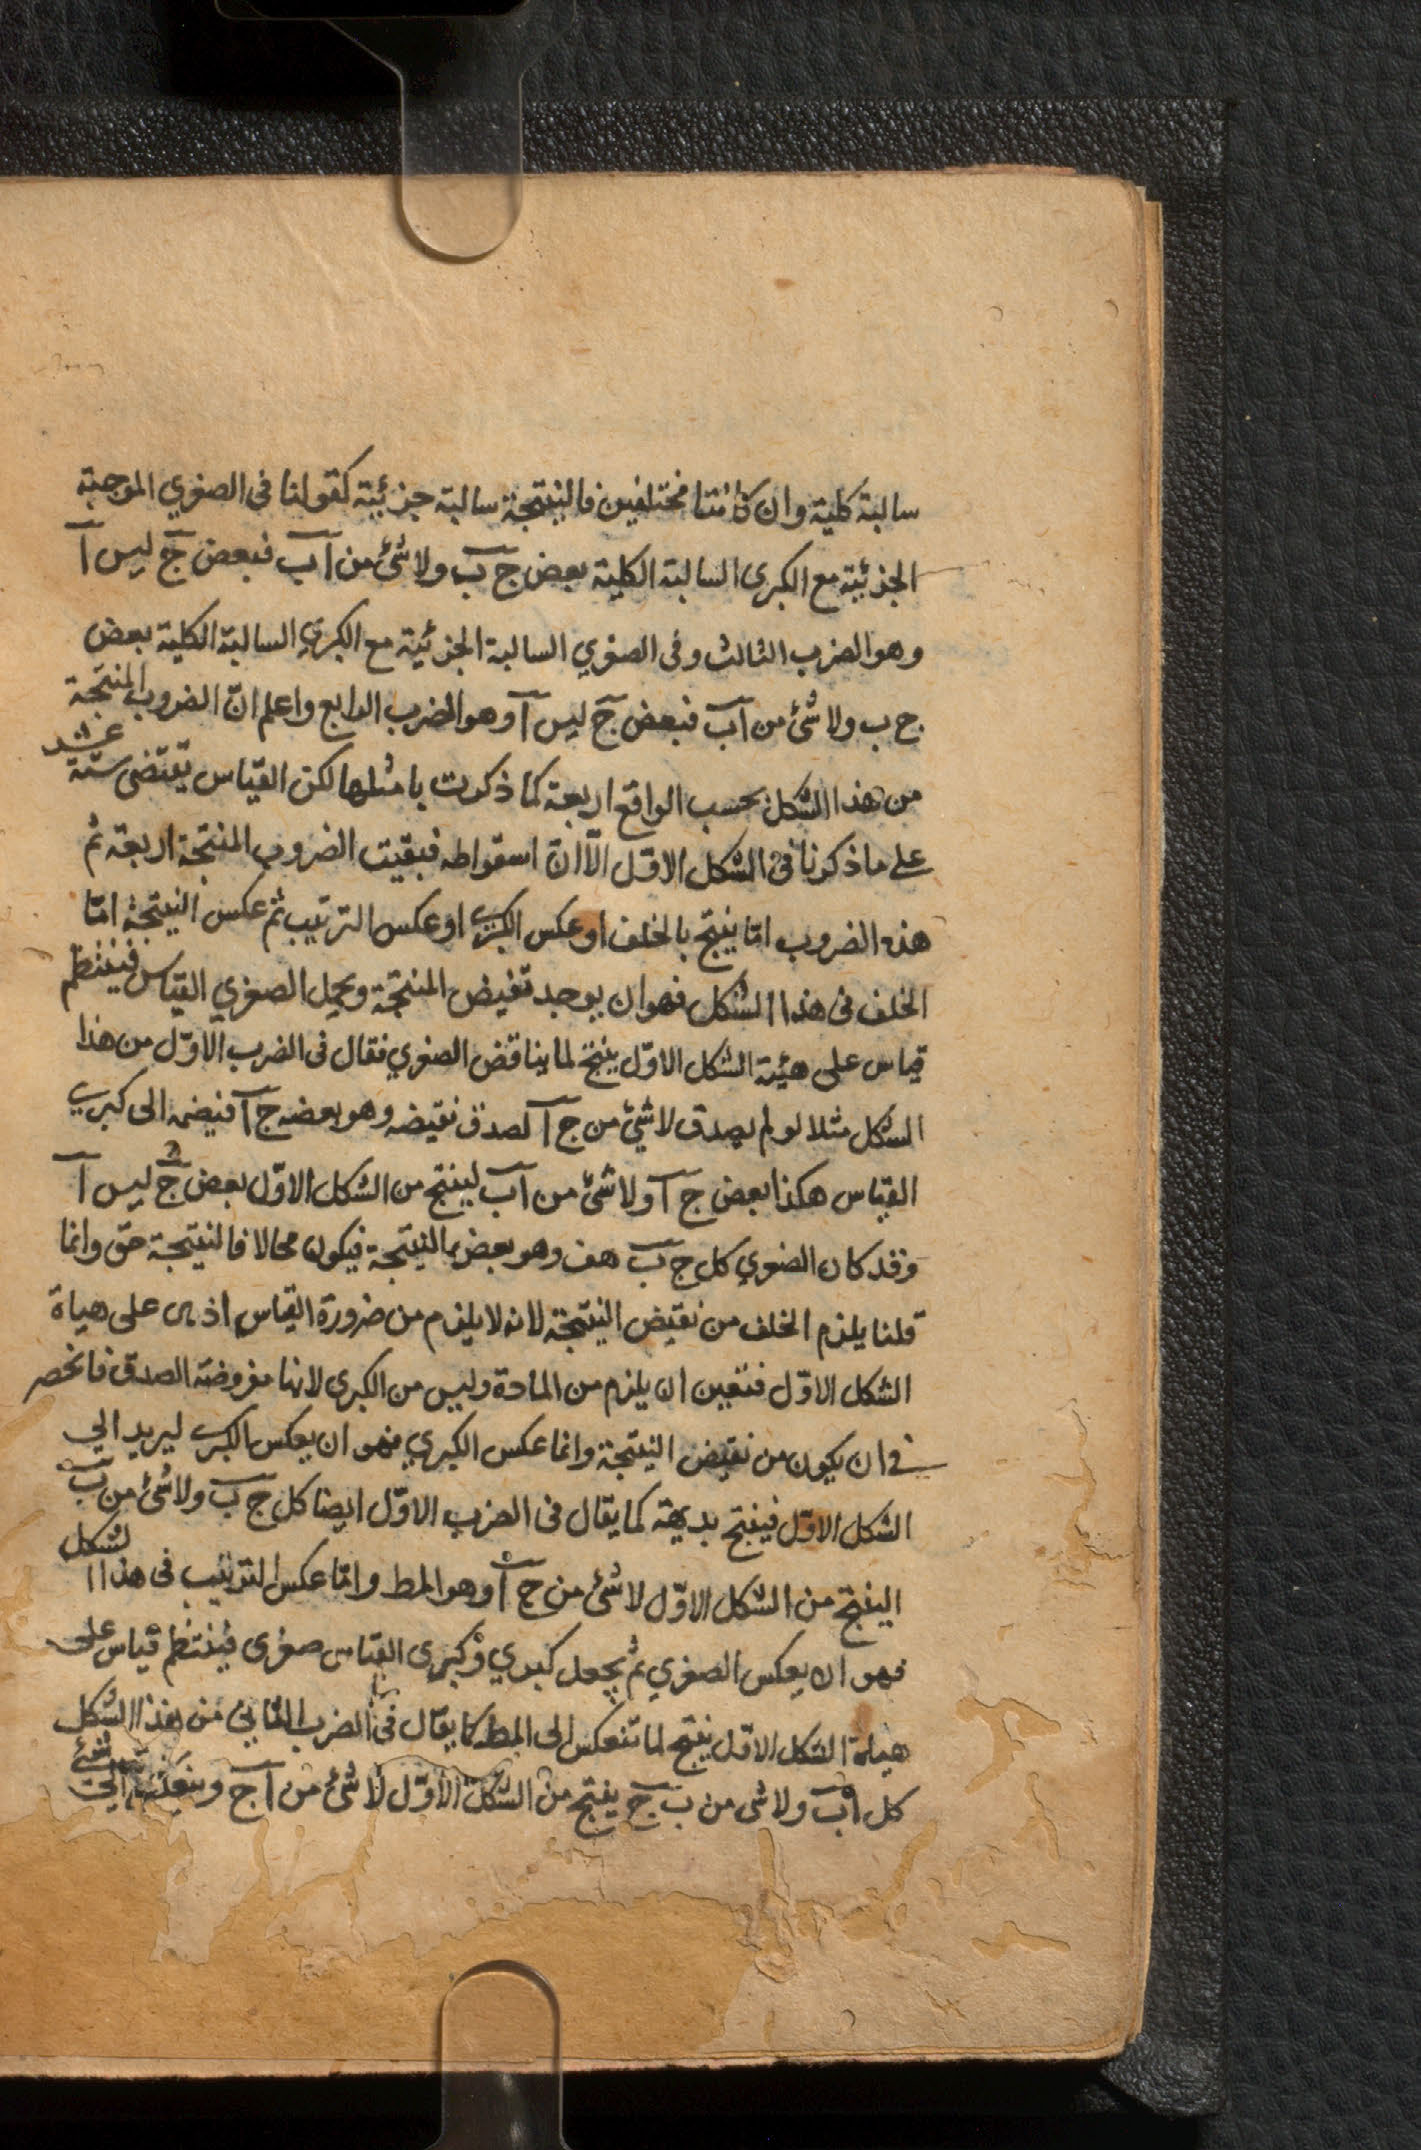 سالبة كلية وان كانتا مختلفين فالنتيجة سالبة جزئية كقولنا فى الصغري الموجبة
الجزئية مع الكبرى السالبة الكلية بعض ج ب ولا شئ من آ ب فبعض ج ليس آ
وهو الضرب الثالث وفى الصغري السالبة الجزئية مع الكبري السالبة الكلية بعض
ج ب ولا شئ من آ ب فبعض ج ليس آ وهو الضرب الرابع واعلم انّ الضروب المنتجة
من هذا الشكل بحسب الواقع اربعة كما ذكرت بامثلها لكن القيّاس يقتضى ستّة عشر
على ما ذكرنا فى الشكل الاوّل الّا انّ اسقواطه فبقيت الضروب المنتجة اربعة ثم
هذه الضروب امّا ينتج بالخلف او عكس الكبرى او عكس الترتيب ثم عكس النتيجة امّا
الخلف فى هذا الشكل فهو ان يوجد نقيض المنتجة ويجعل الصغري القيّاس فينتظم
قياس على هيئة الشكل الاوّل ينتج لما يناقض الصغري فقال فى الضرب الاوّل من هذا
الشكل مثلا لو لم يصدق لا شئ من ج آ لصدق نقيضه وهو بعض ج آ فيضمه الى كبري
القياس هكذا بعض ج آ ولا شئ من آ ب لينتج من الشكل الاوّل بعض ج ليس آ
وقد كان الصغري كل ج ب هف وهو بعض بالنتيجة فيكون محالا فالنتيجة حق وانما
قلنا يلزم الخلف من نقيض النتيجة لانه لا يلزم من ضرورة القياس اذ على هياة
الشكل الاوّل فتعين ان يلزم من المادة وليس من الكبرى لانها مفروضة الصدق فانحصر
فى ان يكون من نقيض النتيجة وانما عكس الكبري فهو ان يعكس الكبرى ليريد الى
الشكل الاوّل فينتج بديهة كما يقال فى الضرب الاوّل ايضا كل ج ب ولا شئ من ب
الينتج من الشكل الاوّل لا شئ من ج آ وهو المط وامّا عكس الترتيب فى هذا الشكل
فهو ان يعكس الصغري ثم يجعل كبري وكبرى القياس صغرى فينتظم قياس على
هياة الشكل الاوّل ينتج لما تنعكس الى المط كما يقال فى الضرب الثانى من هذا الشكل
كل آ ب ولا شى من ب ج ينتج من الشكل الاوّل لا شئ من آ ج وينعكس الى شئ